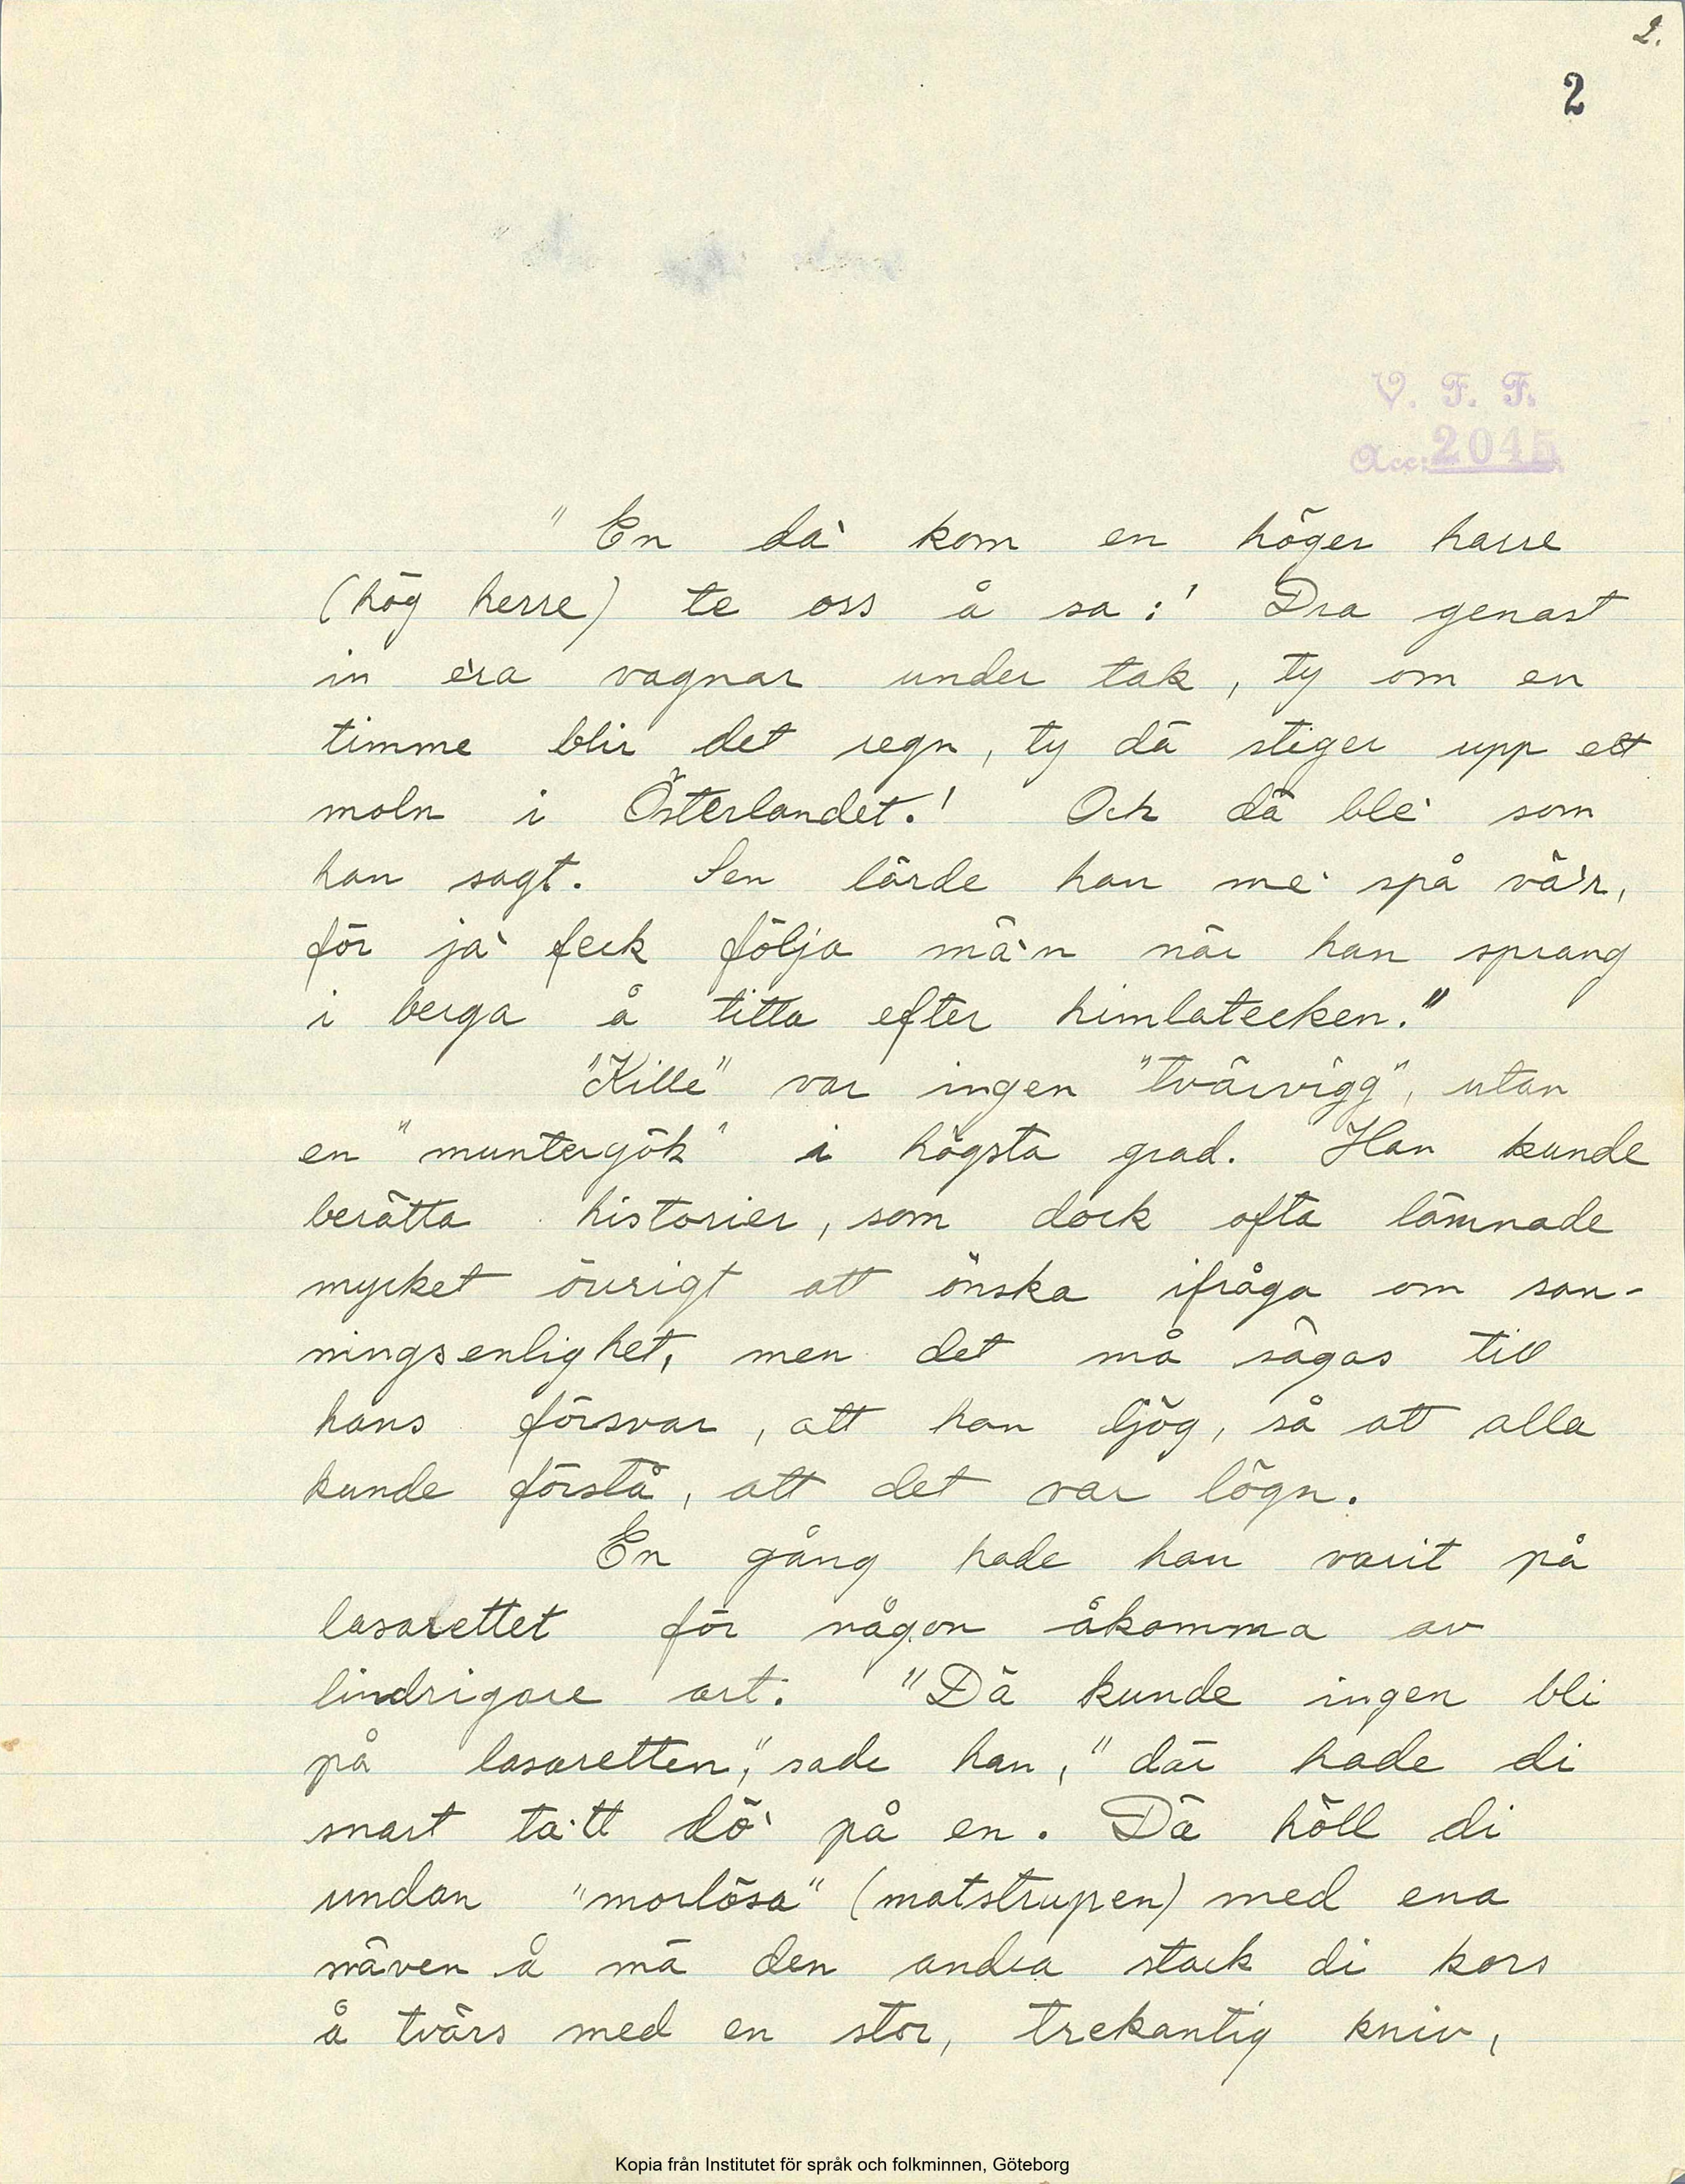 2.
2
V. F. F.
Acc: 2045
"En da' kom en höger harre
(hög herre) te oss å sa: ' Dra genast
in e'ra vagnar under tak, ty om en
timme blir det regn, ty dä stiger upp ett
moln i Österlandet.' Och dä ble' som
han sagt. Sen lärde han me' spå vä'r,
för ja' feck följa mä'n när han sprang
i berga å titta efter himlatecken."
"Kille" var ingen "tvärvigg", utan
en "muntergök" i högsta grad. Han kunde
berätta historier, som dock ofta lämnade
mycket övrigt att önska ifråga om san-
ningsenlighet, men det må sägas till
hans försvar, att han ljög, så att alla
kunde förstå, att det var lögn.
En gång hade han varit på
lasarettet för någon åkomma av
lindrigare art. "Dä kunde ingen bli
på lasaretten," sade han, "där hade di
snart ta'tt dö' på en. Dä höll di
undan "morlösa" (matstrupen) med ena
näven å mä den andra stack di kors
å tvärs med en stor, trekantig kniv,
Kopia från Institutet för språk och folkminnen, Göteborg